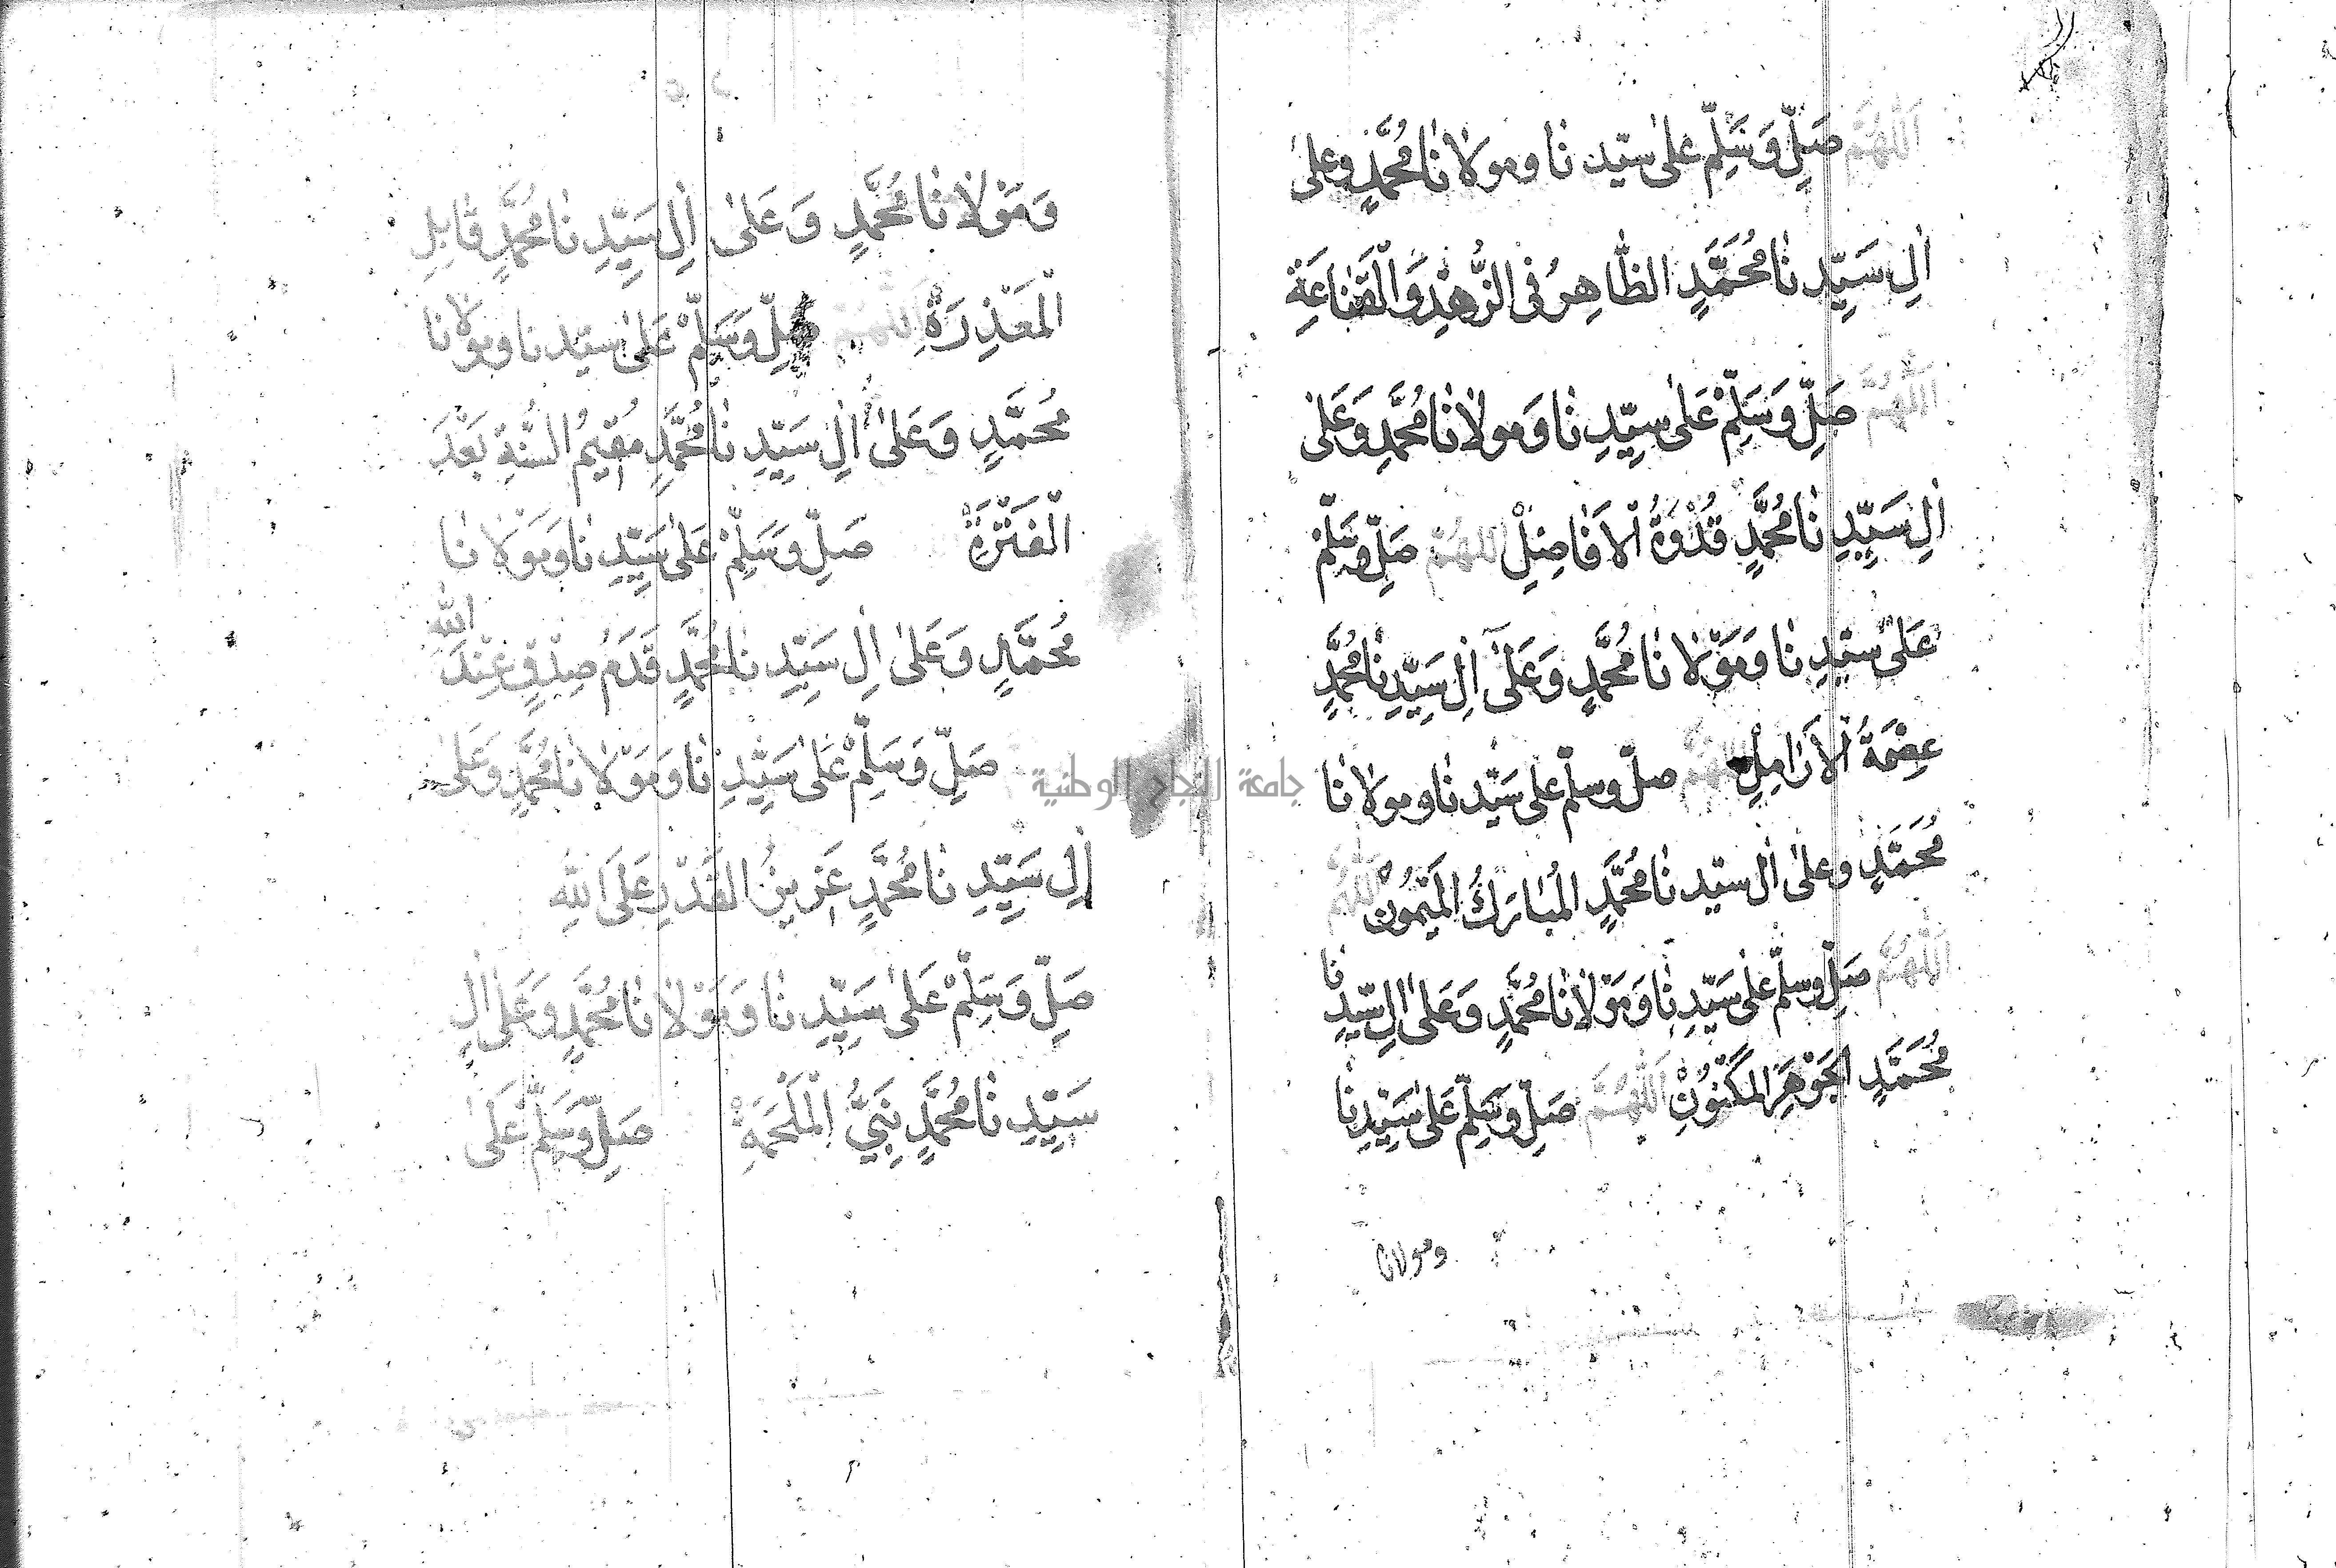 اَللّٰهُمَّ صَلِّ وَسَلِّمْ عَلىٰ سيّدِنَا ومولانَا مُحَمَّدٍ وعلىٰ
اٰلِ سَيِّدِنَا مُحَمَّدٍ الظَّاهِرُ فِى الزُّهْدِ وَالْقَنَاعَةِ
اَللّٰهُمَّ صَلِّ وَسَلِّمْ عَلىٰ سيِّدِنَا وَمولانَا مُحَمَّدٍ وَعَلىٰ
اٰلِ سَيِّدِنَا مُحَمَّدٍ قُدْوَةُ الْاَفَاضِلِ اللهُمَّ صَلِّ وسَلِّمْ
عَلىٰ سيّدِنَا وَمَوْلانَا مُحَمَّدٍ وَعَلىٰ اٰلِ سَيِّدِنَا مُحَمَّدٍ
عِصْمَةُ الْاَرَامِلِ اللهُمَّ صلّ وسلّم على سَيّدنَا ومولانَا
مُحَمَّدٍ وعلىٰ اٰل سيّدنَا مُحَمَّدٍ المُبَارَكُ الْمَيْمُونِ
اَللّٰهُمَّ صَلِّ وسلّم علىٰ سَيّدِنَا وَمَوْلانَا مُحَمَّدٍ وَعَلىٰ اٰلِ سَيّدِنَا
مُحَمَّدٍ الجَوْهَرِ المَكْنُونِ اَللّٰهُمَّ صَلِّ وَسَلِّمْ عَلىٰ سَيِّدِنَا
ومولانا
وَمَوْلانَا مُحَمَّدٍ وَعَلىٰ اٰلِ سَيِّدِنَا مُحَمَّدٍ قَابِلِ
الْمَعْذِرَةِ اللهُمَّ صَلِّ وَسَلِّمْ عَلىٰ سيّدنا ومولانا
مُحَمَّدٍ وَعَلىٰ اٰلِ سَيِّدِنَا مُحَمَّدٍ مُقِيمُ السُّنَّةِ بَعْدَ
الْفَتْرَةِ صَلِّ وَسَلِّمْ عَلىٰ سَيِّدِنَا وَمَوْلانَا
مُحَمَّدٍ وَعَلىٰ اٰلِ سَيِّدِنَا مُحَمَّدٍ قَدَمُ صِدْقٍ عِنْدَ اللّٰهِ
صَلِّ وَسَلِّمْ عَلىٰ سَيِّدِنَا وَمَوْلانَا مُحَمَّدٍ وَعَلىٰ
اٰلِ سَيِّدِنَا مُحَمَّدٍ عَزِيزُ الْقَدْرِ عَلَى اللّٰهِ
صَلِّ وَسَلِّمْ عَلىٰ سَيِّدِنَا وَمَوْلانَا مُحَمَّدٍ وَعَلىٰ اٰلِ
سَيِّدِنَا مُحَمَّدٍ نَبِيُّ الْمَلْحَمَةِ صَلِّ وَسَلِّمْ عَلىٰ
جامعة النجاح الوطنية